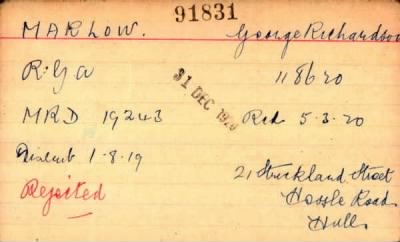 91831
MARLOW. George Richardson
R.G.A 118620
31 DEC 1920
MRD 19243 Red 5-3-20
Disemb 1-8-19
21 Strickland Street
Rejected
Hessle Road
Hull